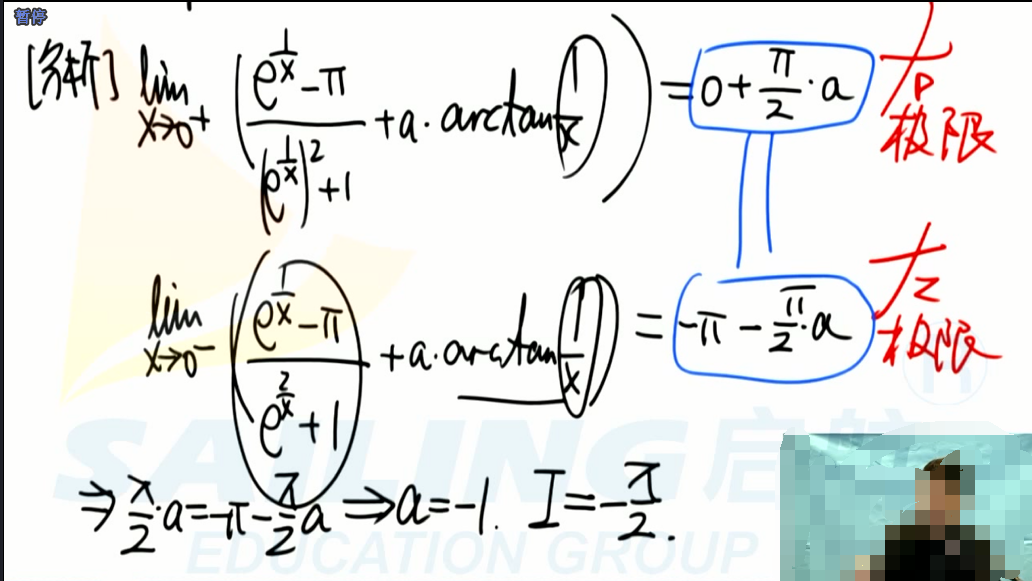 暂停
[分析] lim x→0⁺ ( (e^(1/x) − π) / ((e^(1/x))² + 1) + a · arctan 1/x ) = 0 + π/2 · a 右极限
lim x→0⁻ ( (e^(1/x) − π) / (e^(2/x) + 1) + a · arctan 1/x ) = −π − π/2 · a 左极限
⇒ π/2 · a = −π − π/2 a ⇒ a = −1. I = −π/2.
SAILING 启航
EDUCATION GROUP